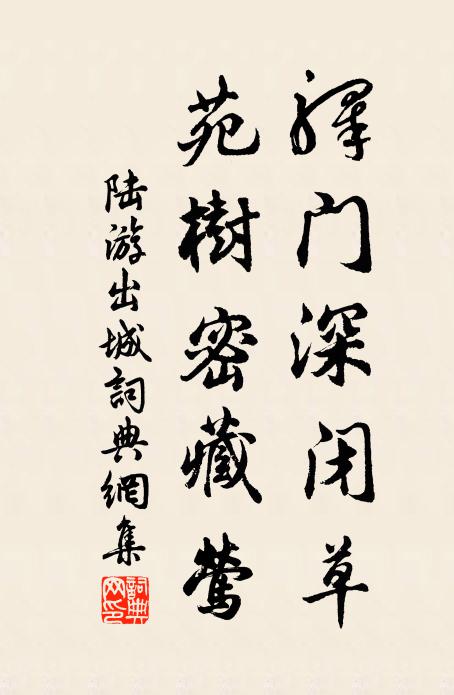 驛门深闭草
苑樹密藏莺
陆游出城詞典網集
詞典网印